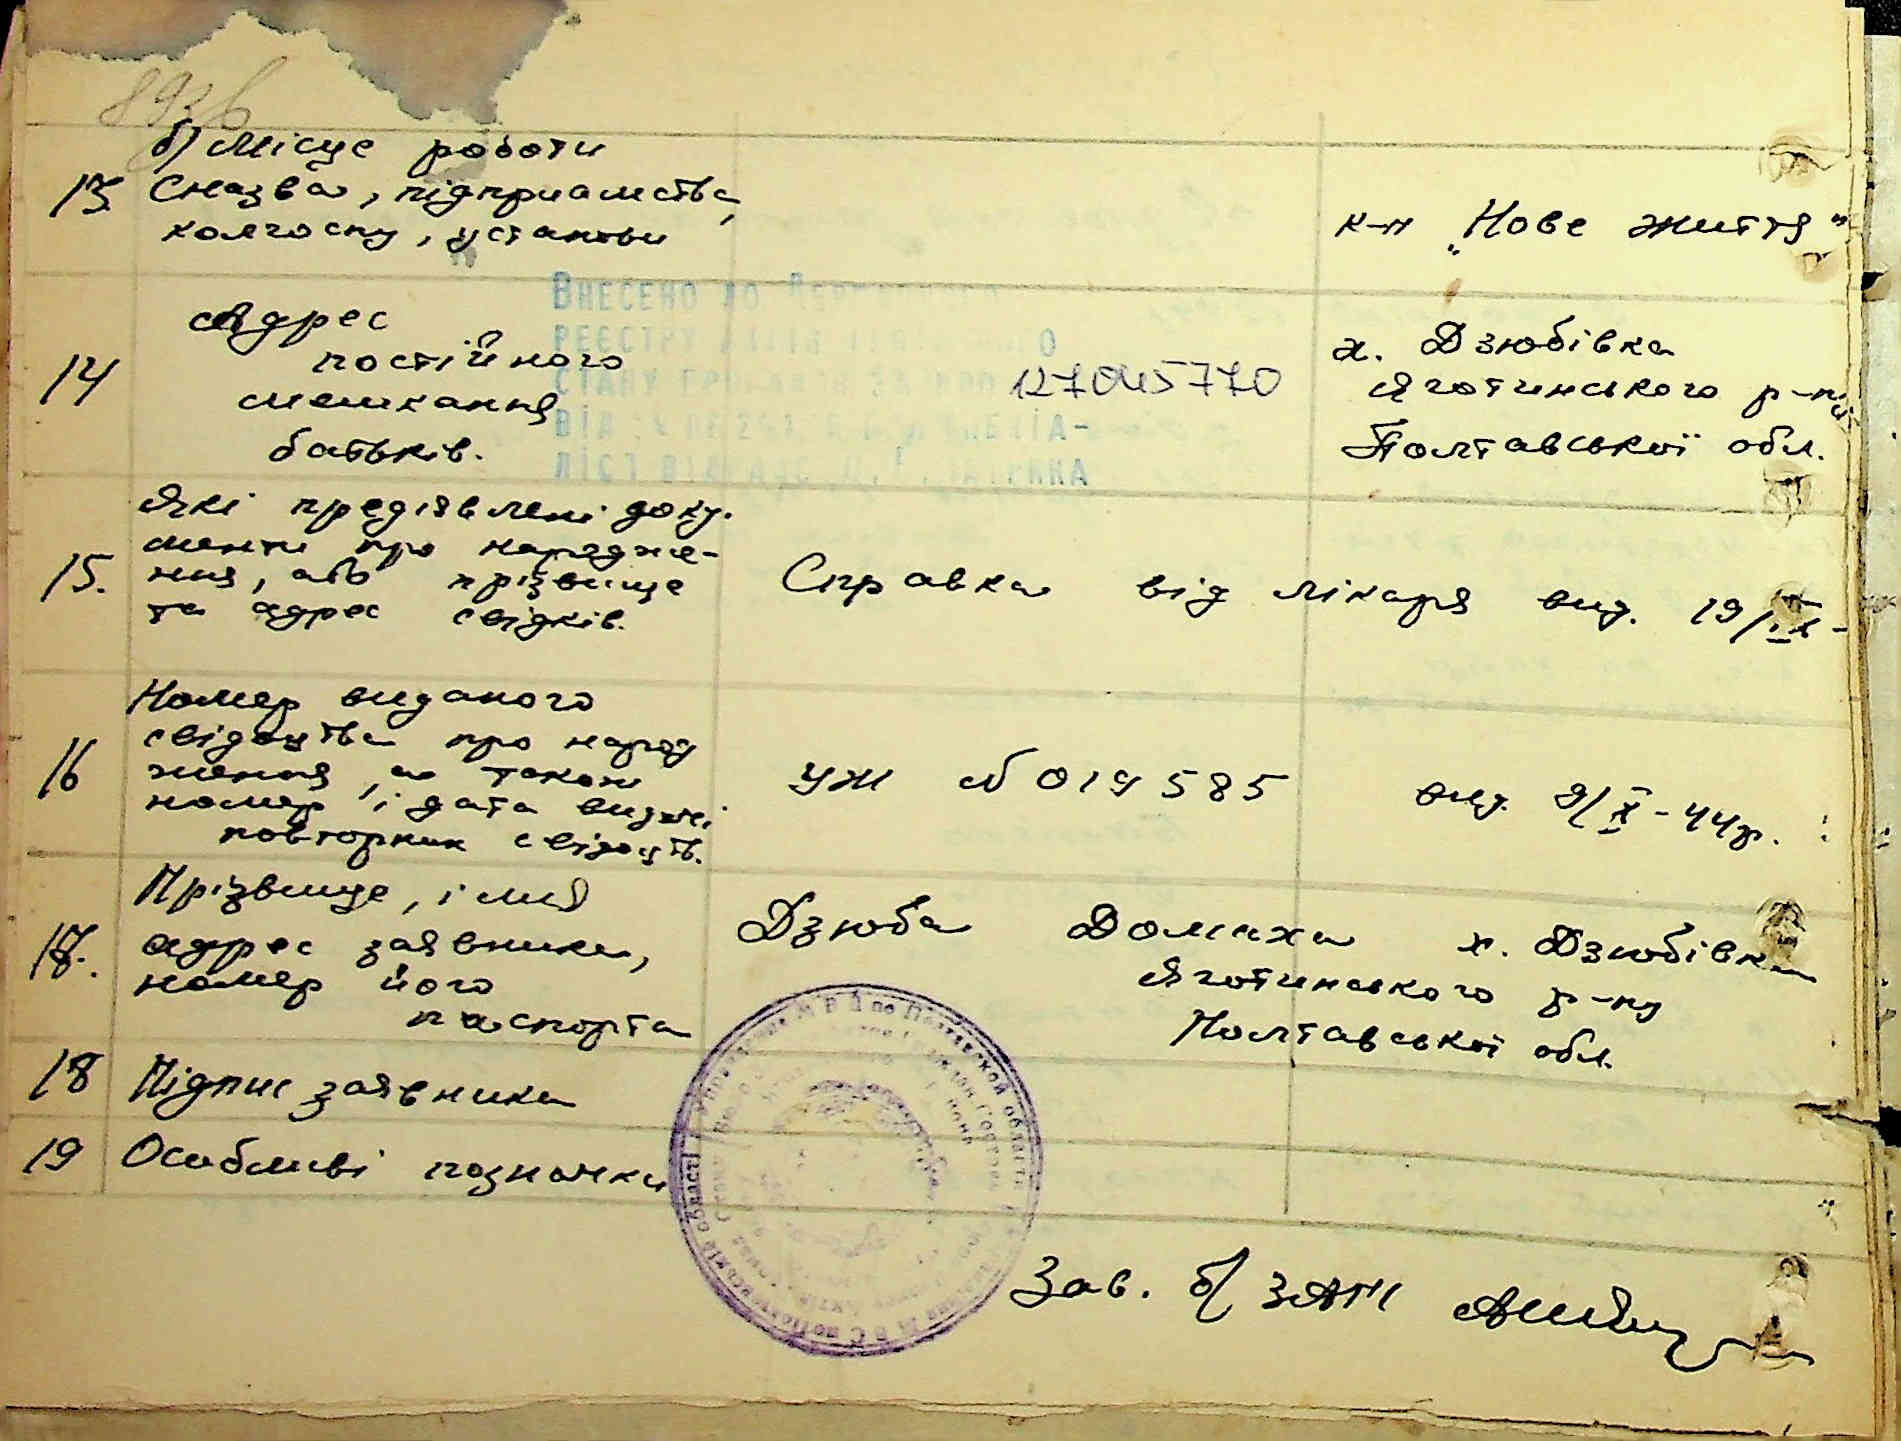 893в
б) Місце роботи
13. (назва, підприємства,
колгоспу, установи
к-п „Нове життя"
14 Адрес
постійного
мешкання
батьків.
127045770
х. Дзюбівка
Яготинського р-ну
Полтавської обл.
Внесено до Державного
реєстру актів цивільного
стану громадян за
від
ліст
15. Які предіявлені доку-
менти про народже-
ння, або прізвище
та адрес свідків.
Справка від лікаря вид. 19/ІХ-
16 Номер виданого
свідоцтва про народ
ження, а також
номер і дата видачі
повторних свідоцтв.
УЖ № 019585 вид. 9/X-44р.
17. Прізвище, імя
адрес заявника,
номер його
паспорта
Дзюба Домаха х. Дзюбівка
Яготинського р-ну
Полтавської обл.
18 Підпис заявника
19 Особливі позначки
Управление МВД по Полтавской области
Зав. б/ ЗАГС